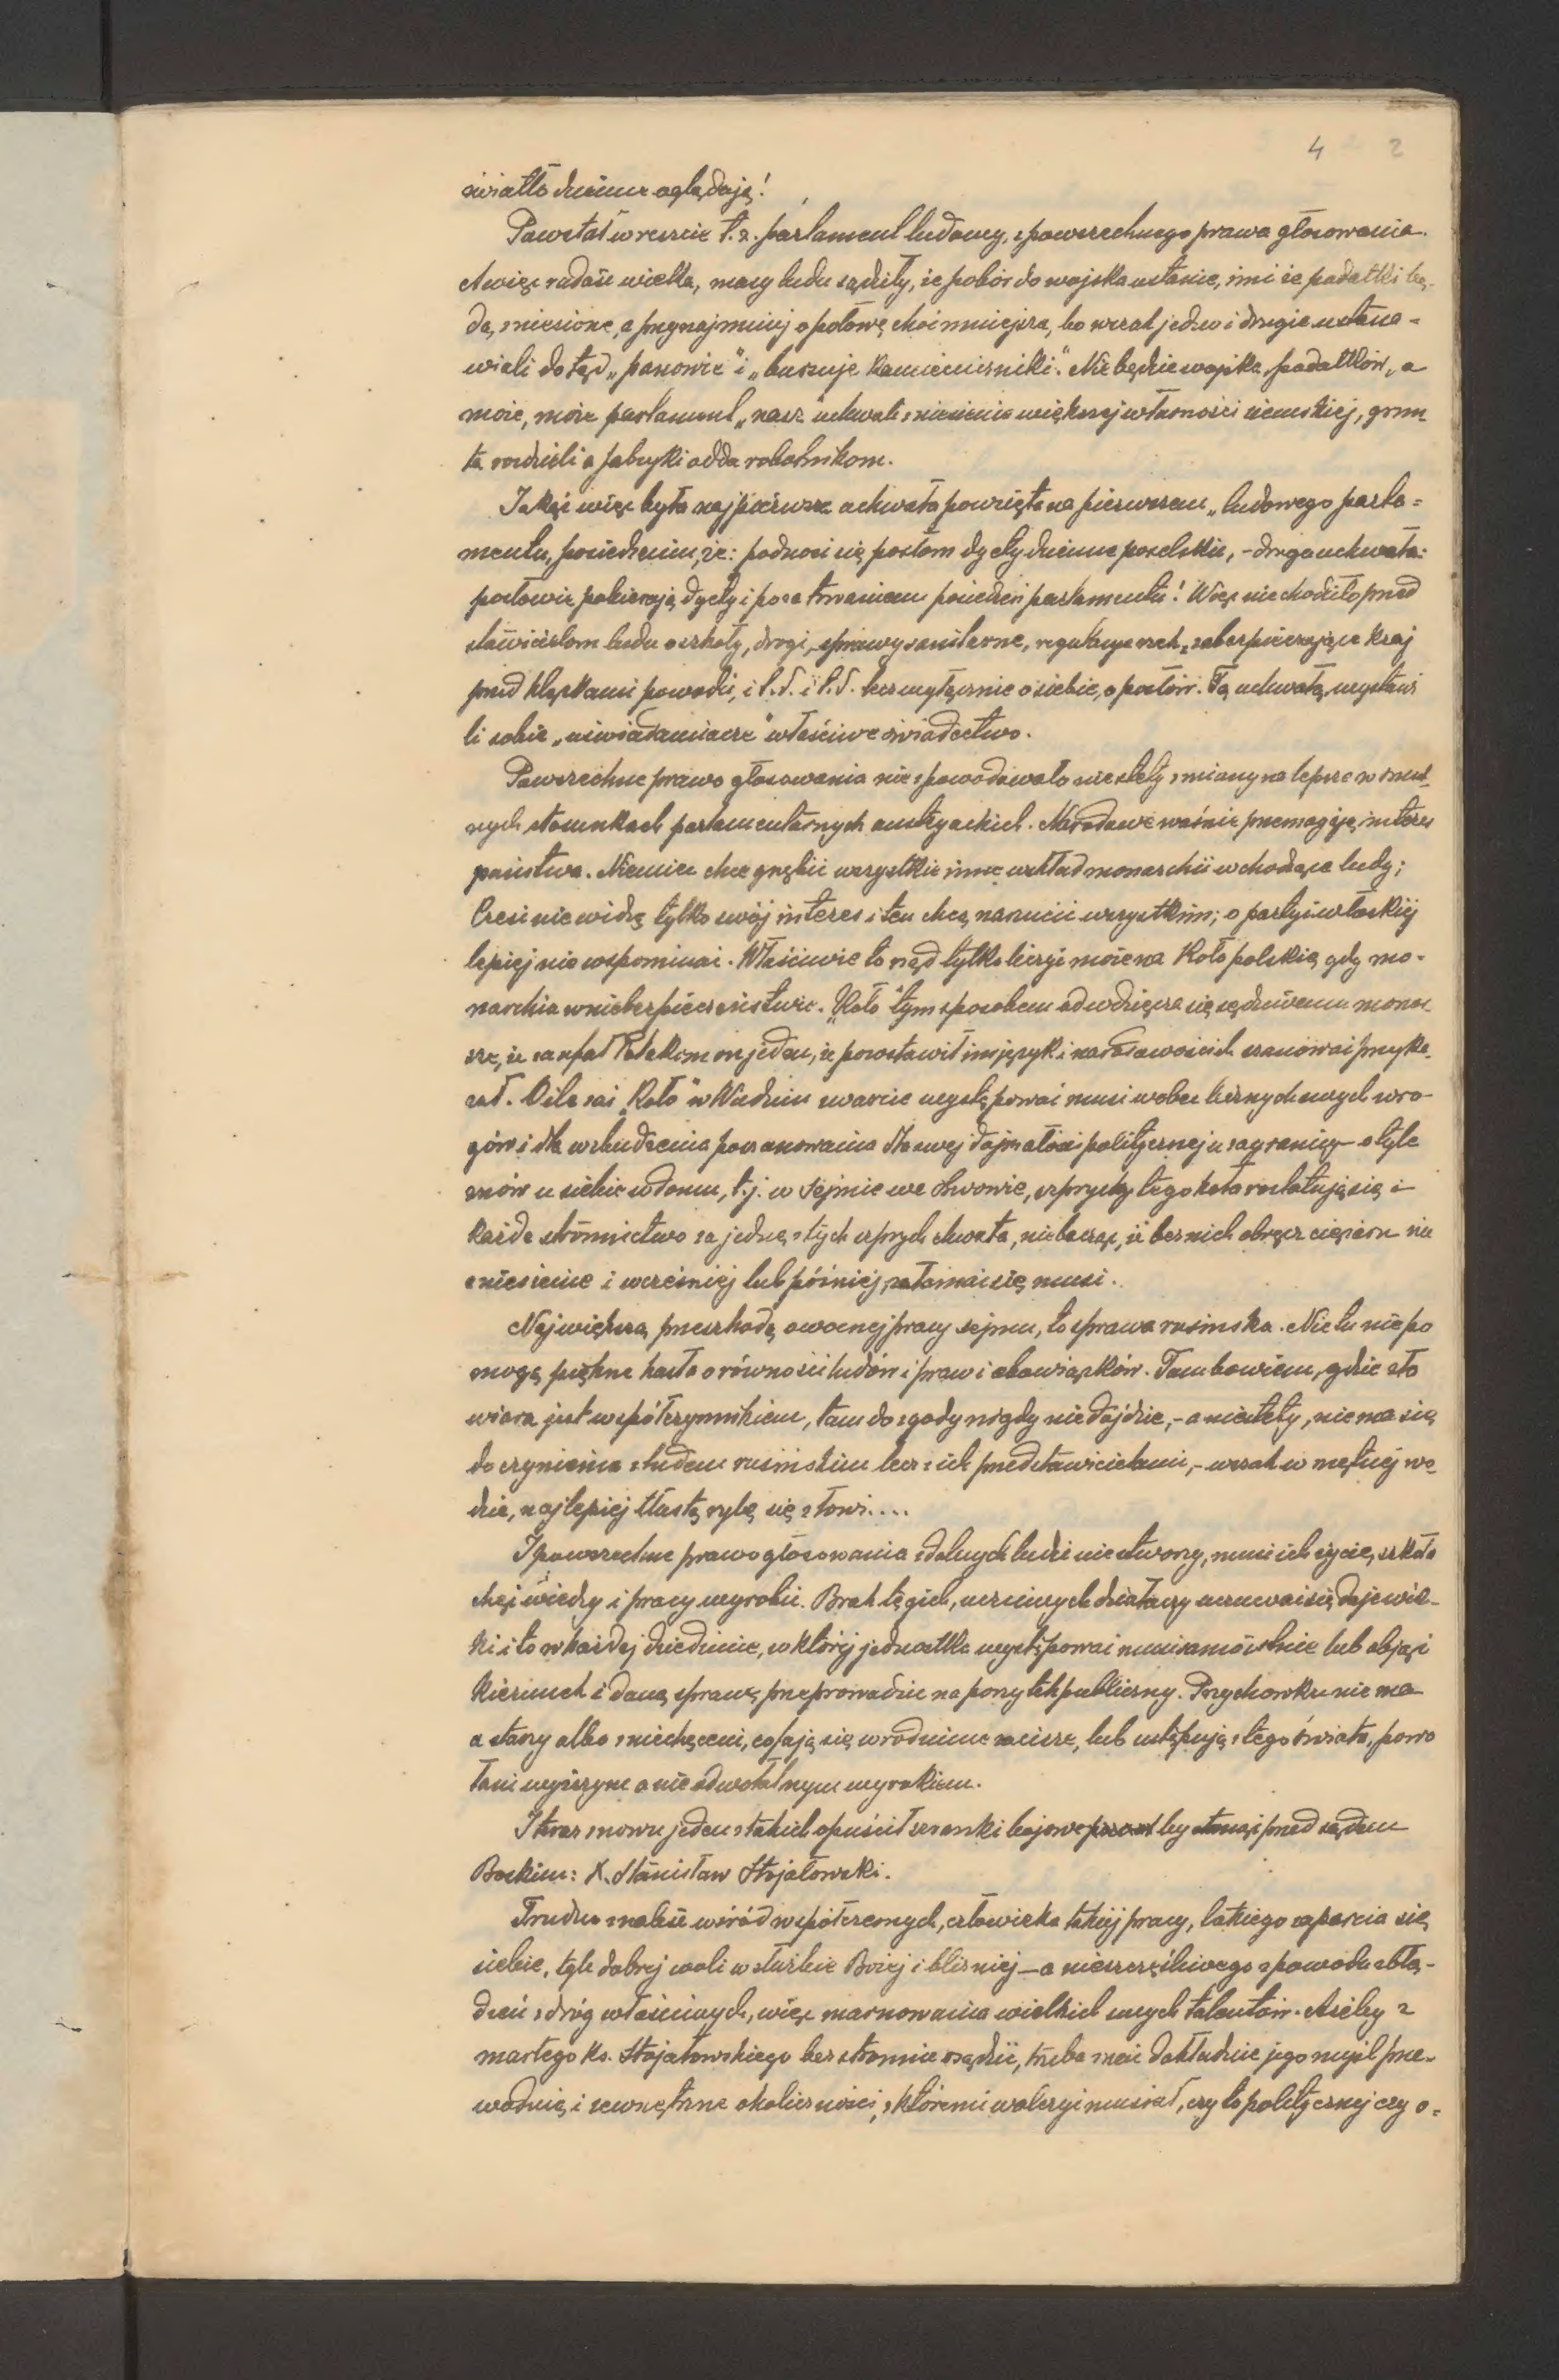 4 2
światło dzienne oglądają!
Powstał wreszcie t.z. parlament ludowy, z powszechnego prawa głosowania.
A więc radość wielka, masy ludu sądziły, że pobór do wojska ustanie, inni że podatki bę-
dą zniesione, a przynajmniej o połowę choć mniejsze, bo wszak jedno i drugie ustana-
wiali dotąd „panowie” i „burżuje kamieniczniki”. Nie będzie wojska, podatków, a
może, może parlament „nasz” uchwali zniesienie większej własności ziemskiej, grun-
ta rozdzieli a fabryki odda robotnikom.
Jakąż więc była najpierwsza uchwała powzięta na pierwszem „ludowego parla=
mentu” posiedzeniu, że: podnosi się posłom dyety dzienne poselskie, - druga uchwała:
posłowie pobierają dyety i poza trwaniem posiedzeń parlamentu! Więc nie chodziło przed
stawicielom ludu o szkoły, drogi, sprawy sanitarne, regulacye rzek, zabezpieczające kraj
przed klęskami powodzi, i t.d. i t.d. lecz wyłącznie o siebie, o posłów. Tą uchwałą wystawi
li sobie „uświadamiacze” właściwe świadectwo.
Powszechne prawo głosowania nie spowodowało niestety zmiany na lepsze w smut-
nych stosunkach parlamentarnych austryackich. Narodowe waśnie przemagają interes
państwa. Niemiec chce gnębić wszystkie inne w skład monarchii wchodzące ludy;
Czesi nie widzą tylko swój interes i ten chcą narzucić wszystkim; o partyi włoskiej
lepiej nie wspominać. Właściwie to rząd tylko liczyć może na Koło polskie, gdy mo-
narchia w niebezpieczeństwie. „Koło” tym sposobem odwdzięcza się sędziwemu monar
sze, iż zaufał Polakom on jeden, że pozostawił im język i narodowość ich szanować przyka-
zał. O ile zaś „Koło” w Wiedniu zwarcie występować musi wobec licznych swych wro-
gów i dla wzbudzenia poszanowania dla swej dojrzałości politycznej u zagranicy - o tyle
znów u siebie w domu, t.j. w Sejmie we Lwowie, szprychy tego koła rozlatują się i
każde stronnictwo za jedną z tych szprych chwyta, nie bacząc, iż bez nich obręcz ciężaru nie
zniesienie i wcześniej lub później załamać się musi.
Największą przeszkodą owocnej pracy sejmu, to sprawa rusińska. Nic tu nie po
mogą piękne hasła o równości ludów i praw i obowiązków. Tam bowiem, gdzie zła
wiara jest współczynnikiem, tam do zgody nigdy nie dojdzie, - a niestety, nie ma się
do czynienia z ludem rusińskim lecz z ich przedstawicielami, - wszak w mętnej wo-
dzie, najlepiej tłustą rybę się złowi....
I powszechne prawo głosowania zdolnych ludzi nie stworzy, musi ich życie, szkoła
chęć wiedzy i pracy wyrobić. Brak tęgich, uczciwych działaczy uczuwać się daje wiel-
ki i to w każdej dziedzinie, w której jednostka występować musi samoistnie lub objąć
kierunek i daną sprawę przeprowadzić na pożytek publiczny. Przychowku nie ma
a starzy albo zniechęceni, cofają się w rodzinne zacisze, lub ustępują z tego świata, powo
łani wyższym a nieodwołalnym wyrokiem.
I teraz znowu jeden z takich opuścił szranki bojowe by stanąć przed sądem
Boskim: X. Stanisław Stojałowski.
Trudno znaleźć wśród współczesnych, człowieka takiej pracy, takiego zaparcia się
siebie, tyle dobrej woli w służbie Bożej i bliźniej - a nieszczęśliwego z powodu zbłą-
dzeń z dróg właściwych, więc marnowania wielkich swych talentów. Ażeby z
marłego Ks. Stojałowskiego bezstronnie osądzić, trzeba znać dokładnie jego myśl prze-
wodnię i zewnętrzne okoliczności, z któremi walczyć musiał, czy to politycznej czy o=